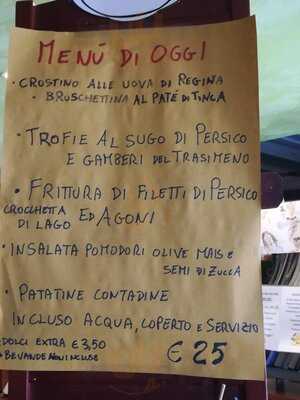 MENÚ DI OGGI
• CROSTINO ALLE UOVA DI REGINA
• BRUSCHETTINA AL PATÉ DI TINCA
• TROFIE AL SUGO DI PERSICO
E GAMBERI DEL TRASIMENO
• FRITTURA DI FILETTI DI PERSICO
CROCCHETTA ED AGONI
DI LAGO
• INSALATA POMODORI OLIVE MAIS E
SEMI DI ZUCCA
• PATATINE CONTADINE
INCLUSO ACQUA, COPERTO E SERVIZIO
DOLCI EXTRA € 3,50
BEVANDE NON INCLUSE
€ 25